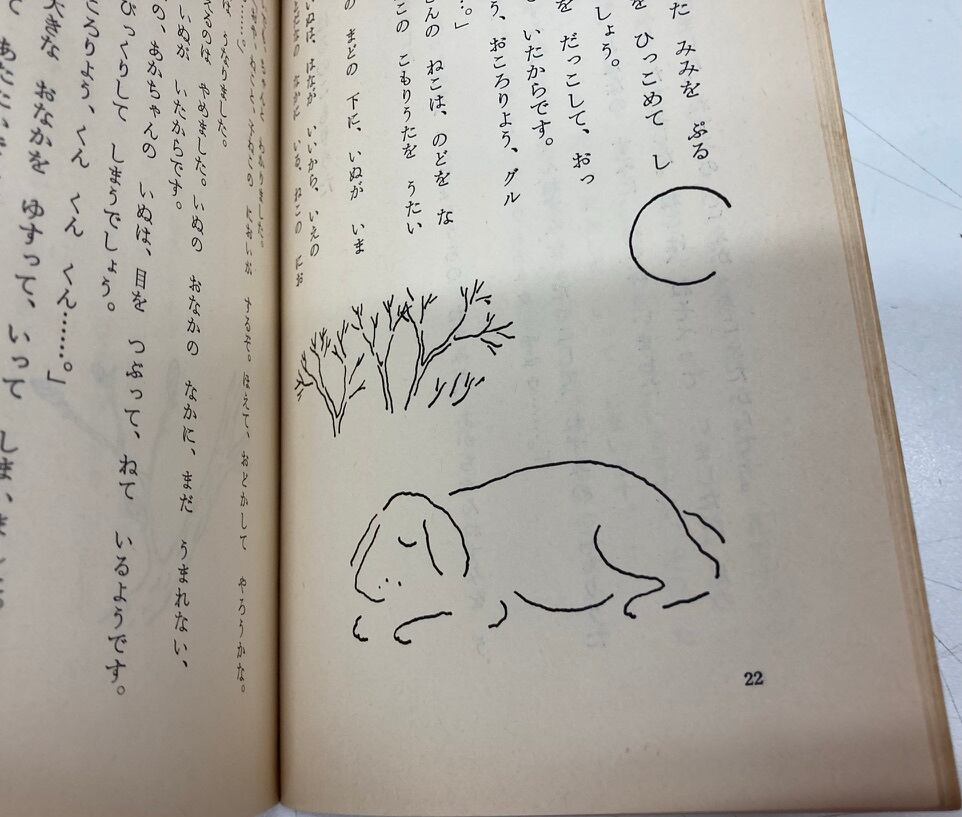 た みみを ぷる
を ひっこめて し
しょう。
を だっこして、おっ
いたからです。
う、おころりよう、グル
。」
しんの ねこは、のどを な
この こもりうたを うたい
の まどの 下に、いぬが いま
いぬは、はなが いいから、いえの
なかに いる、ねこの にお
ちゃんと わかりました。
ねこと、子ねこの においが するぞ。ほえて、おどかして やろうかな。
は、うなりました。
えるのは やめました。いぬの おなかの なかに、まだ うまれない、
いぬが いたからです。
の、あかちゃんの いぬは、目を つぶって、ねて いるようです。
びっくりして しまうでしょう。
ころりよう、くん くん くん……。」
大きな おなかを ゆすって、いって しま
22